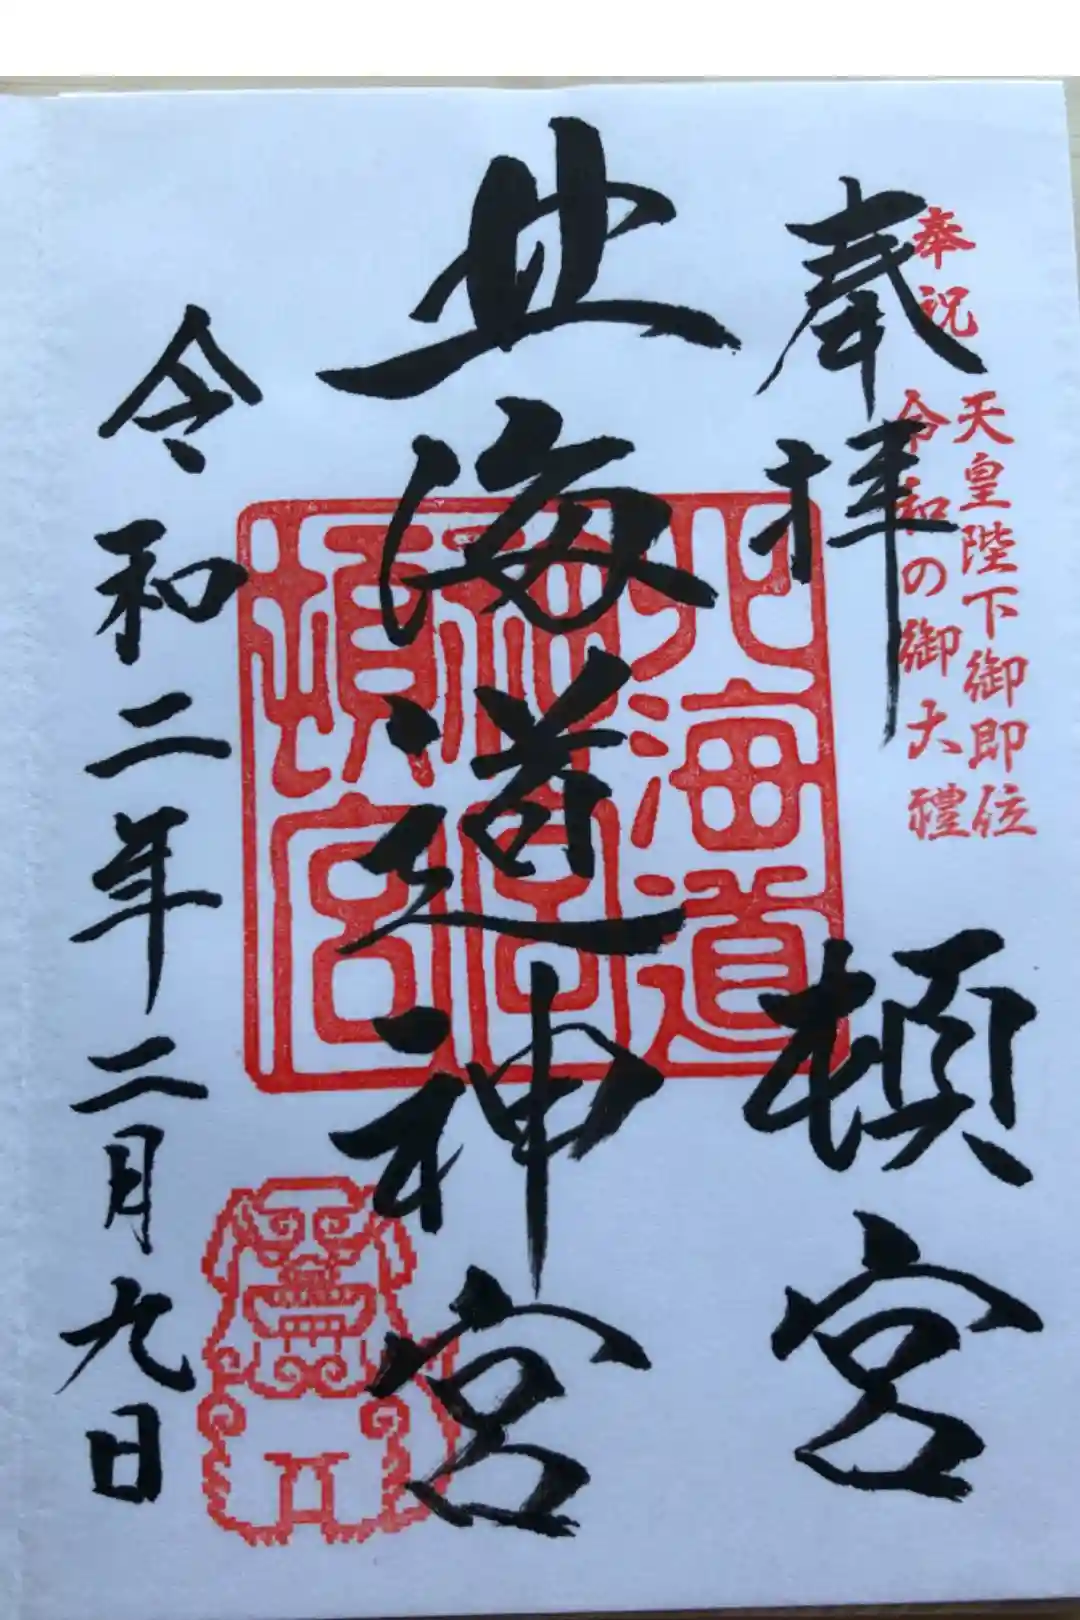 奉祝
天皇陛下御即位
令和の御大禮
奉拝
頓宮
北海道神宮
北海道
神宮
頓宮
令和二年二月九日